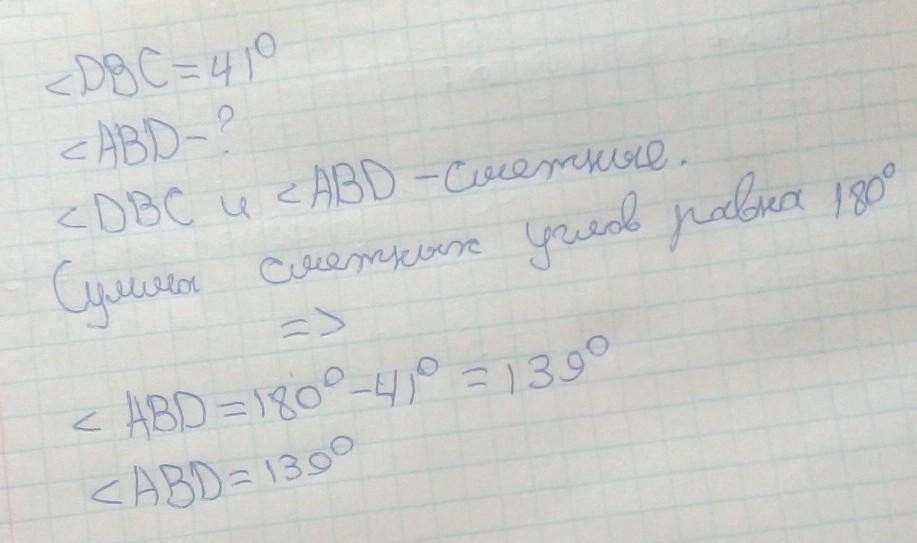 <DBC=41⁰
<ABD-?
<DBC и <ABD-смежные.
Сумма смежных углов равна 180⁰
=>
< ABD=180⁰-41⁰=139⁰
<ABD=139⁰